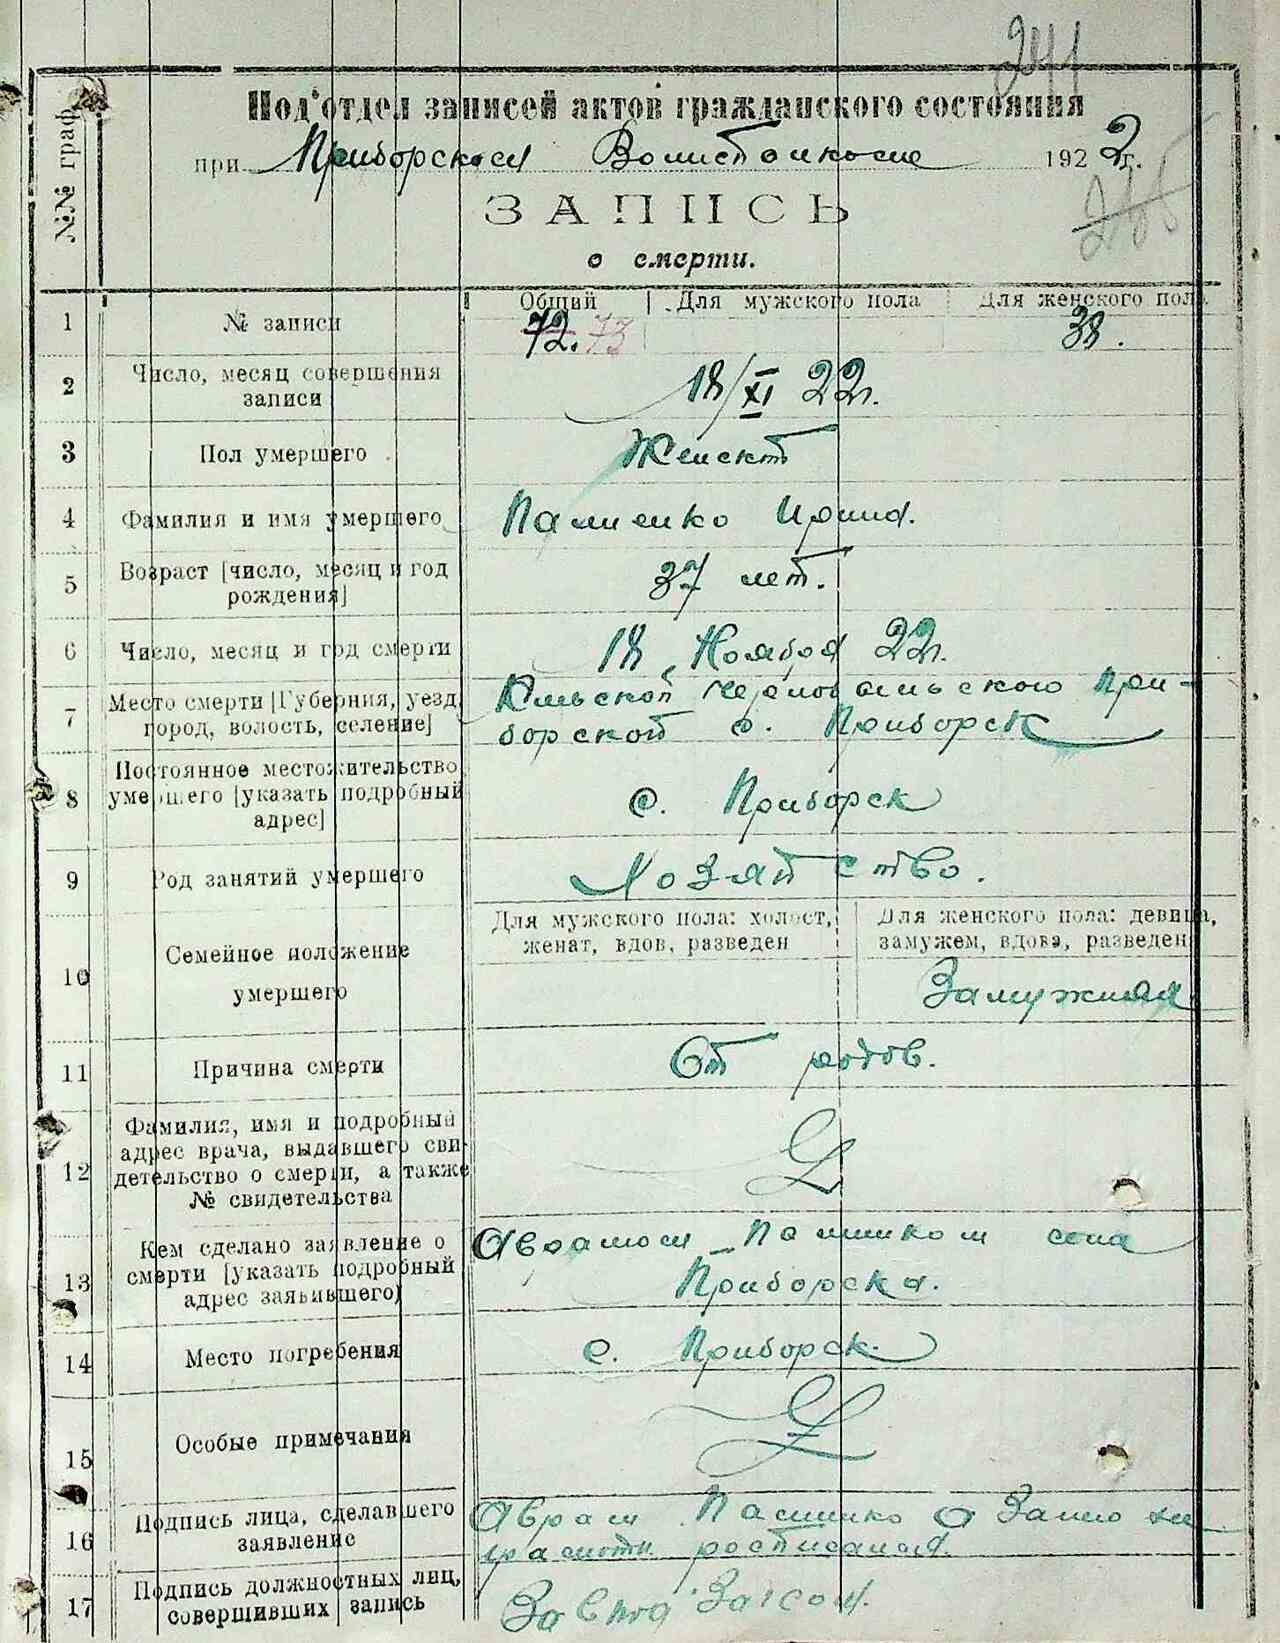 241
Под'отдел записей актов гражданского состояния
при Приборском 1922 г.
ЗАПИСЬ
о смерти.
№№ граф
Общий Для мужского пола Для женского пола
1 № записи 72. 73 38.
2 Число, месяц совершения
записи 18/XI 22 г.
3 Пол умершего
4 Фамилия и имя умершего
5 Возраст [число, месяц и год
рождения] 37 лет.
6 Число, месяц и год смерти 18 Ноября 22 г.
7 Место смерти [Губерния, уезд,
город, волость, селение] При-
борской с. Приборск
8 Постоянное местожительство
умершего [указать подробный
адрес] с. Приборск
9 Род занятий умершего
10 Семейное положение
умершего
Для мужского пола: холост,
женат, вдов, разведен
Для женского пола: девица,
замужем, вдова, разведен
Замужняя
11 Причина смерти От родов.
12 Фамилия, имя и подробный
адрес врача, выдавшего сви-
детельство о смерти, а также
№ свидетельства
13 Кем сделано заявление о
смерти [указать подробный
адрес заявившего]
Приборска.
14 Место погребения с. Приборск.
15 Особые примечания
16 Подпись лица, сделавшего
заявление Аврам
17 Подпись должностных лиц,
совершивших запись Загсом.